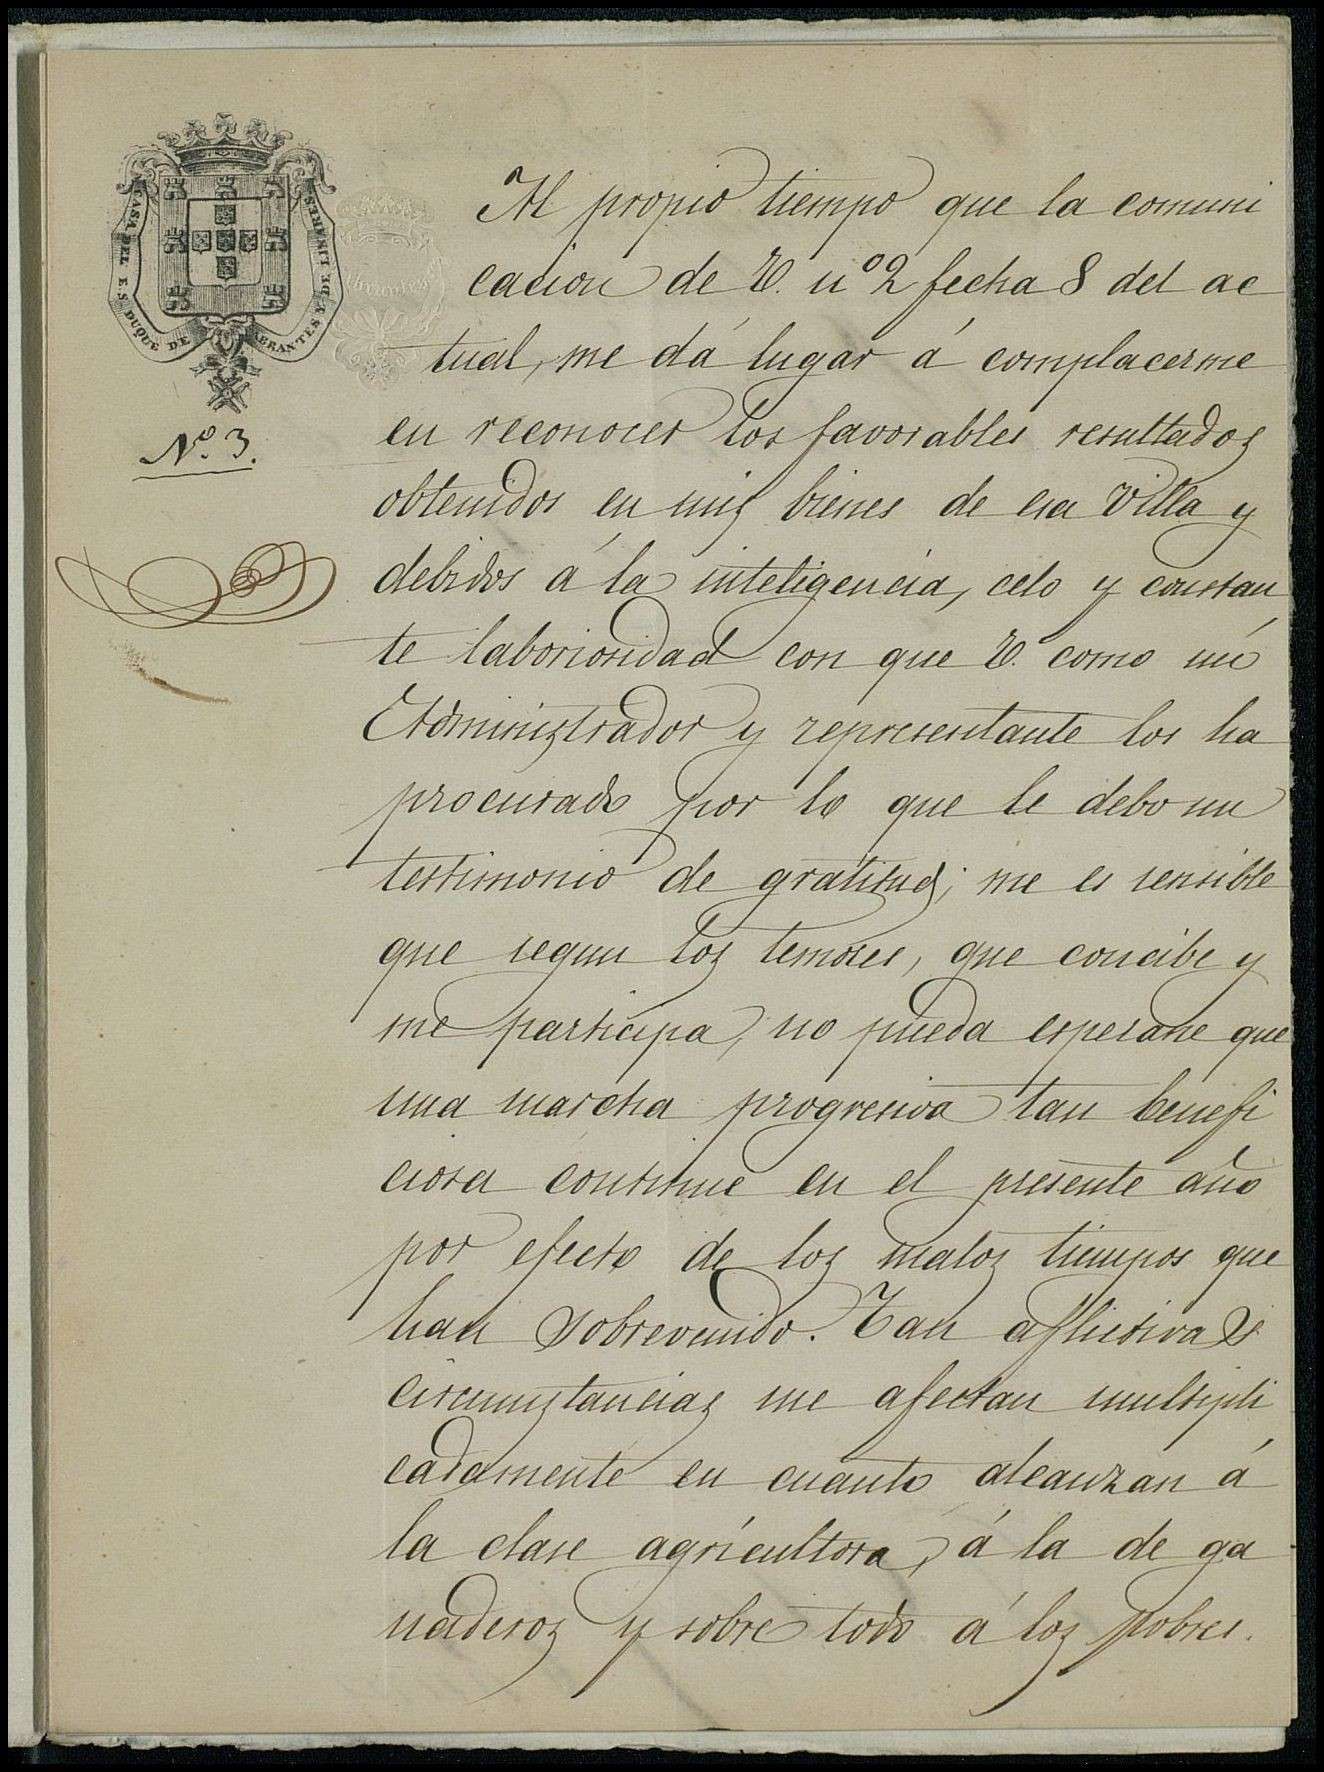 CASA DEL E. S. DUQUE DE ABRANTES Y DE LINARES
Nº 3.
Al propio tiempo que la comuni
cacion de V. nº 2 fecha 8 del ac
tual, me dá lugar á complacerme
en reconocer los favorables resultados
obtenidos en mis bienes de esa Villa y
debidos á la inteligencia, celo y constan
te laboriosidad con que V. como mi
Administrador y representante los ha
procurado por lo que le debo un
testimonio de gratitud; me es sensible
que segun los temores, que concibe y
me participa, no pueda esperarse que
una marcha progresiva tan benefi
ciosa continue en el presente año
por efecto de los malos tiempos que
han sobrevenido. Tan aflictivas
circunstancias me afectan multipli
cadamente en cuanto alcanzan á
la clase agricultora, á la de ga
naderos y sobre todo á los pobres.